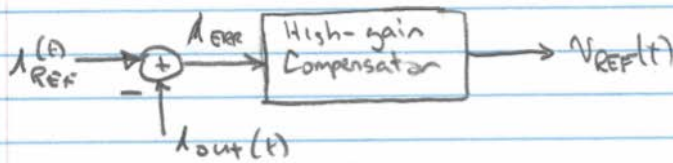 i_REF(t)
+
−
i_ERR
High-gain
Compensator
v_REF(t)
i_out(t)